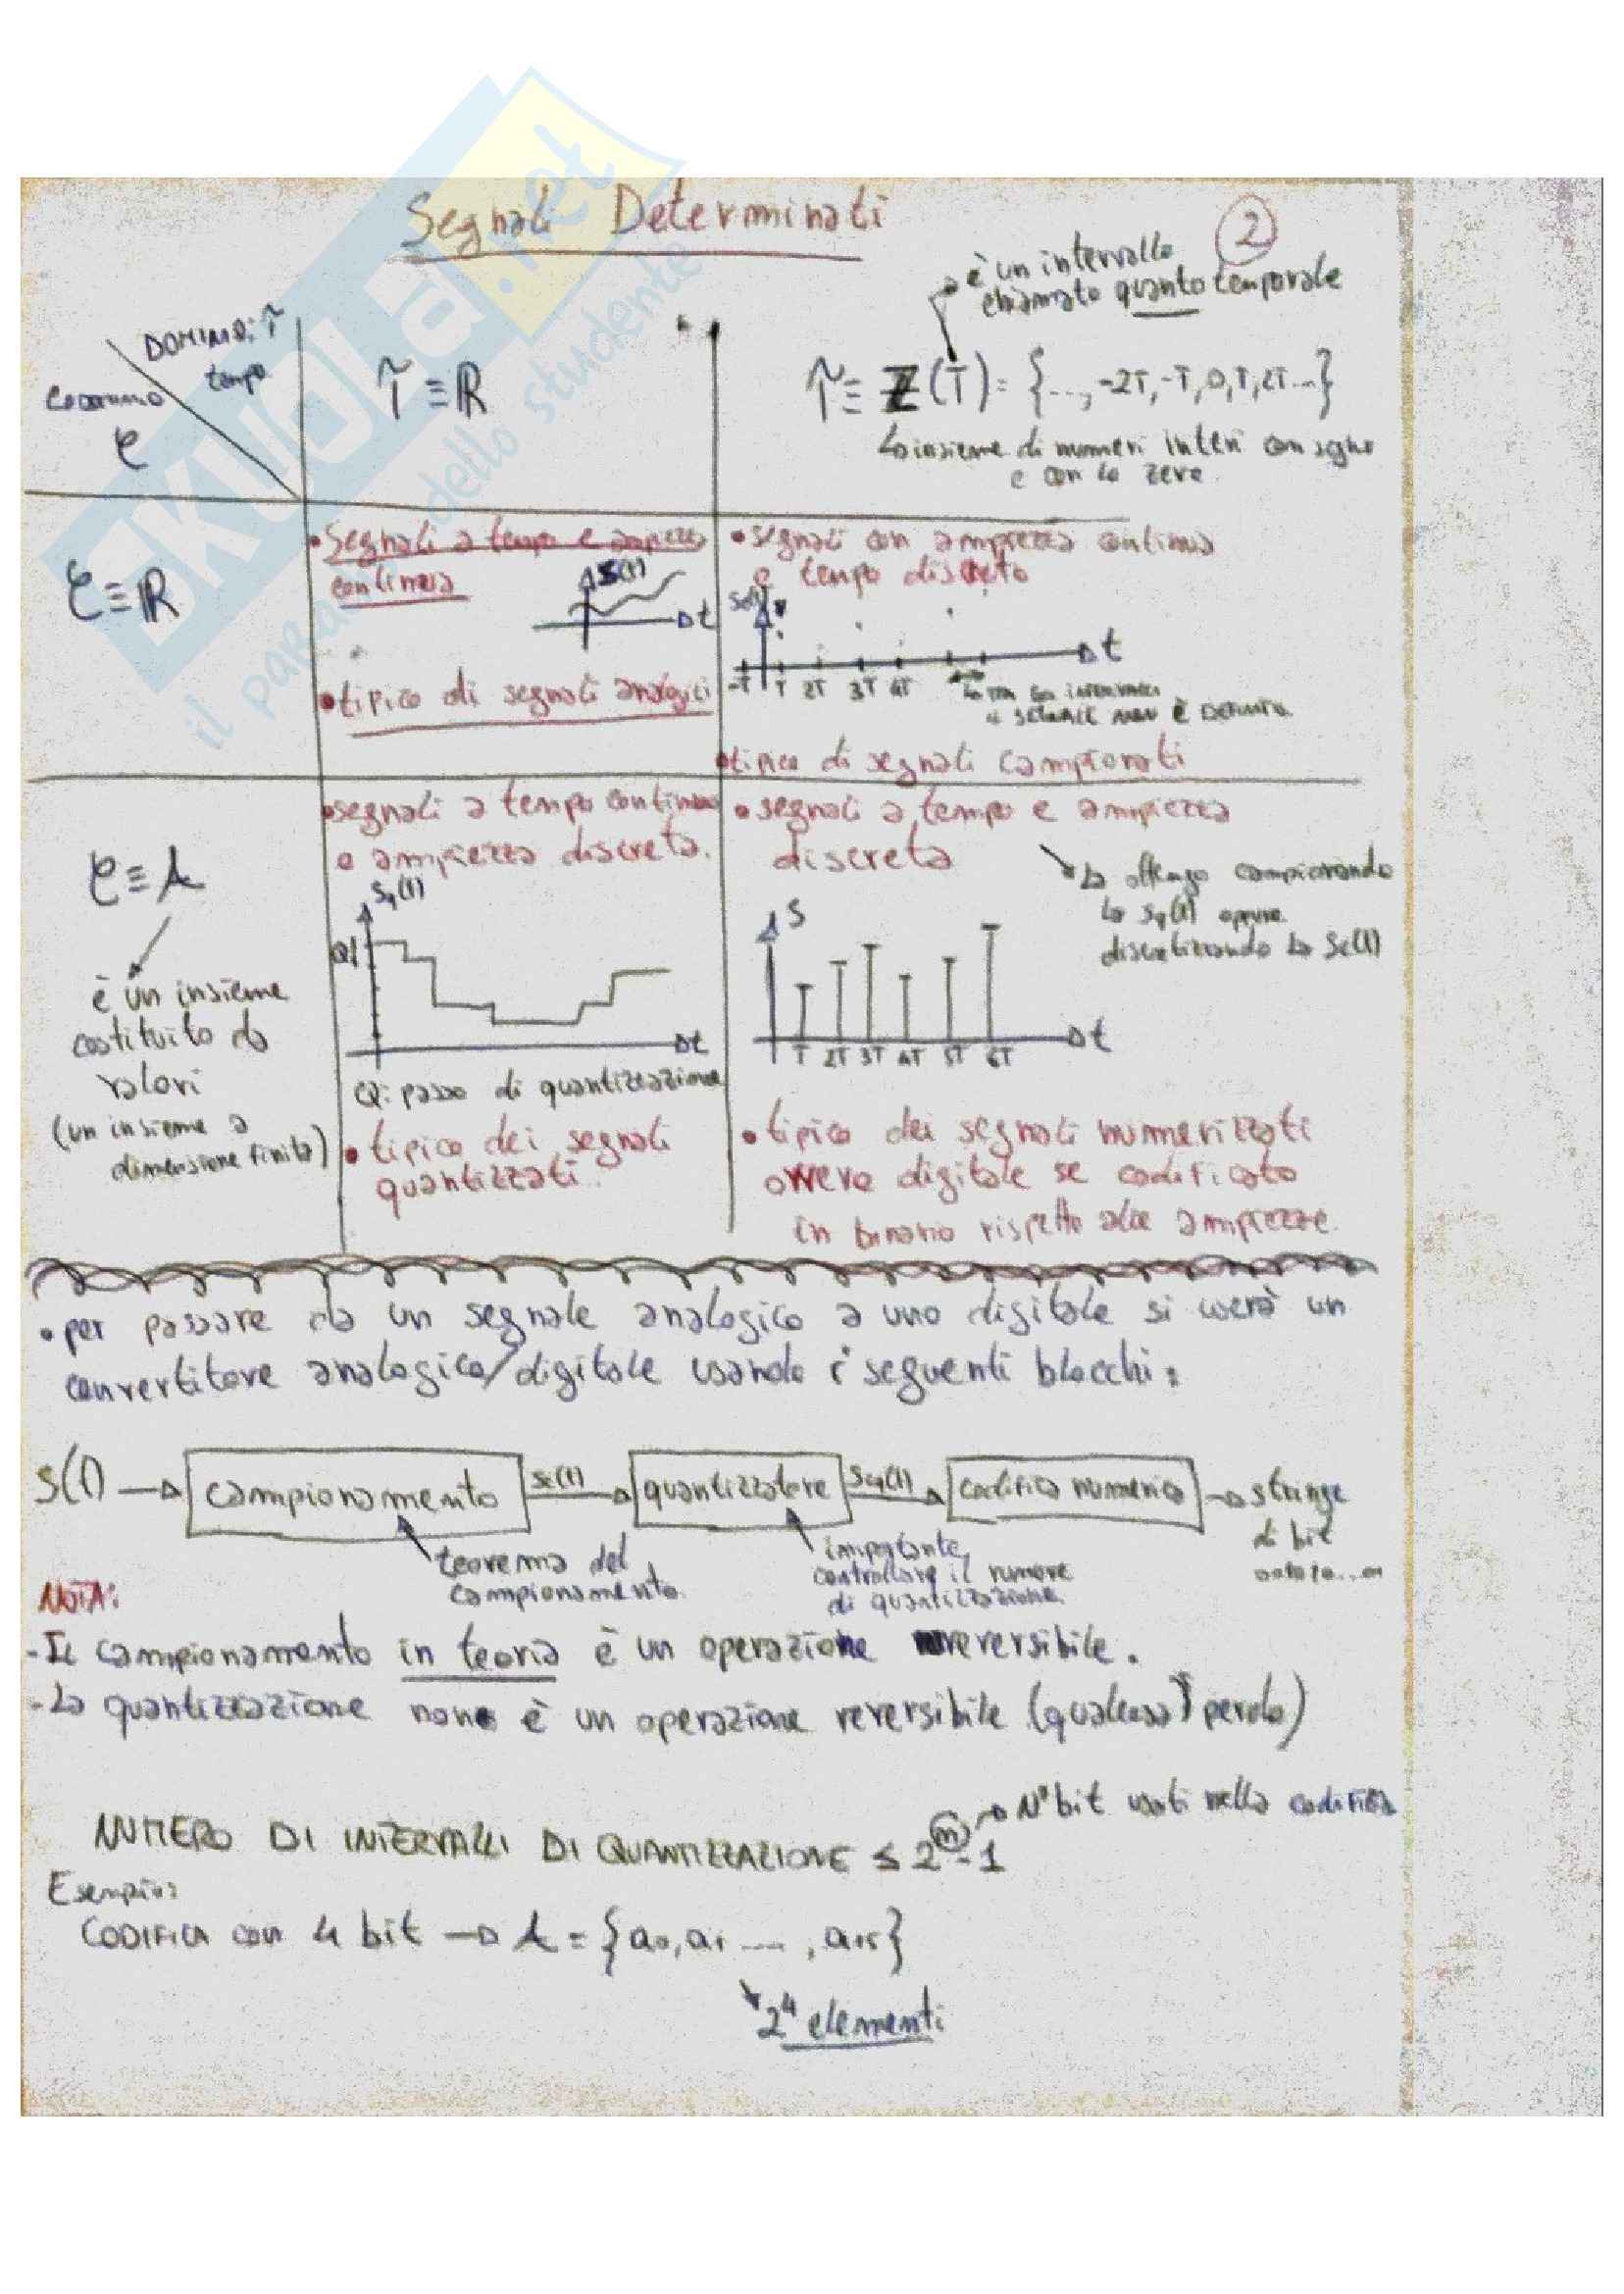 SKUOLA.net
il paradiso dello studente
Segnali Determinati
2
è un intervallo
chiamato quanto temporale
DOMINIO: T
tempo
Codominio
C
T ≡ ℝ
T ≡ ℤ(T) = {..., -2T, -T, 0, T, 2T...}
insieme di numeri interi con segno
e con lo zero.
C ≡ ℝ
• Segnali a tempo e ampiezza
continua
S(t)
t
• tipico di segnali analogici
• segnali con ampiezza continua
e tempo discreto
t
-T T 2T 3T 4T
il segnale non è definito
• tipico di segnali campionati
C ≡ A
è un insieme
costituito da
valori
(un insieme a
dimensione finita)
• segnali a tempo continuo
e ampiezza discreta.
Sq(t)
Q
t
Q: passo di quantizzazione
• tipico dei segnali
quantizzati.
• segnali a tempo e ampiezza
discreta
Lo ottengo campionando
lo Sq(t) oppure
discretizzando lo Sc(t)
S
t
T 2T 3T 4T 5T 6T
• tipico dei segnali numerizzati
ovvero digitale se codificato
in binario rispetto alle ampiezze.
• per passare da un segnale analogico a uno digitale si userà un
convertitore analogico/digitale usando i seguenti blocchi:
S(t) → campionamento Sc(t) → quantizzatore Scq(t) → codifica numerica → stringa
di bit
teorema del
campionamento.
importante
controllare il rumore
di quantizzazione.
NOTA:
- Il campionamento in teoria è un operazione reversibile.
- La quantizzazione non è un operazione reversibile (qualcosa perdo)
N° bit usati nella codifica
NUMERO DI INTERVALLI DI QUANTIZZAZIONE ≤ 2^n - 1
Esempio:
CODIFICA con 4 bit → A = {a0, a1 ..., a15}
2^4 elementi